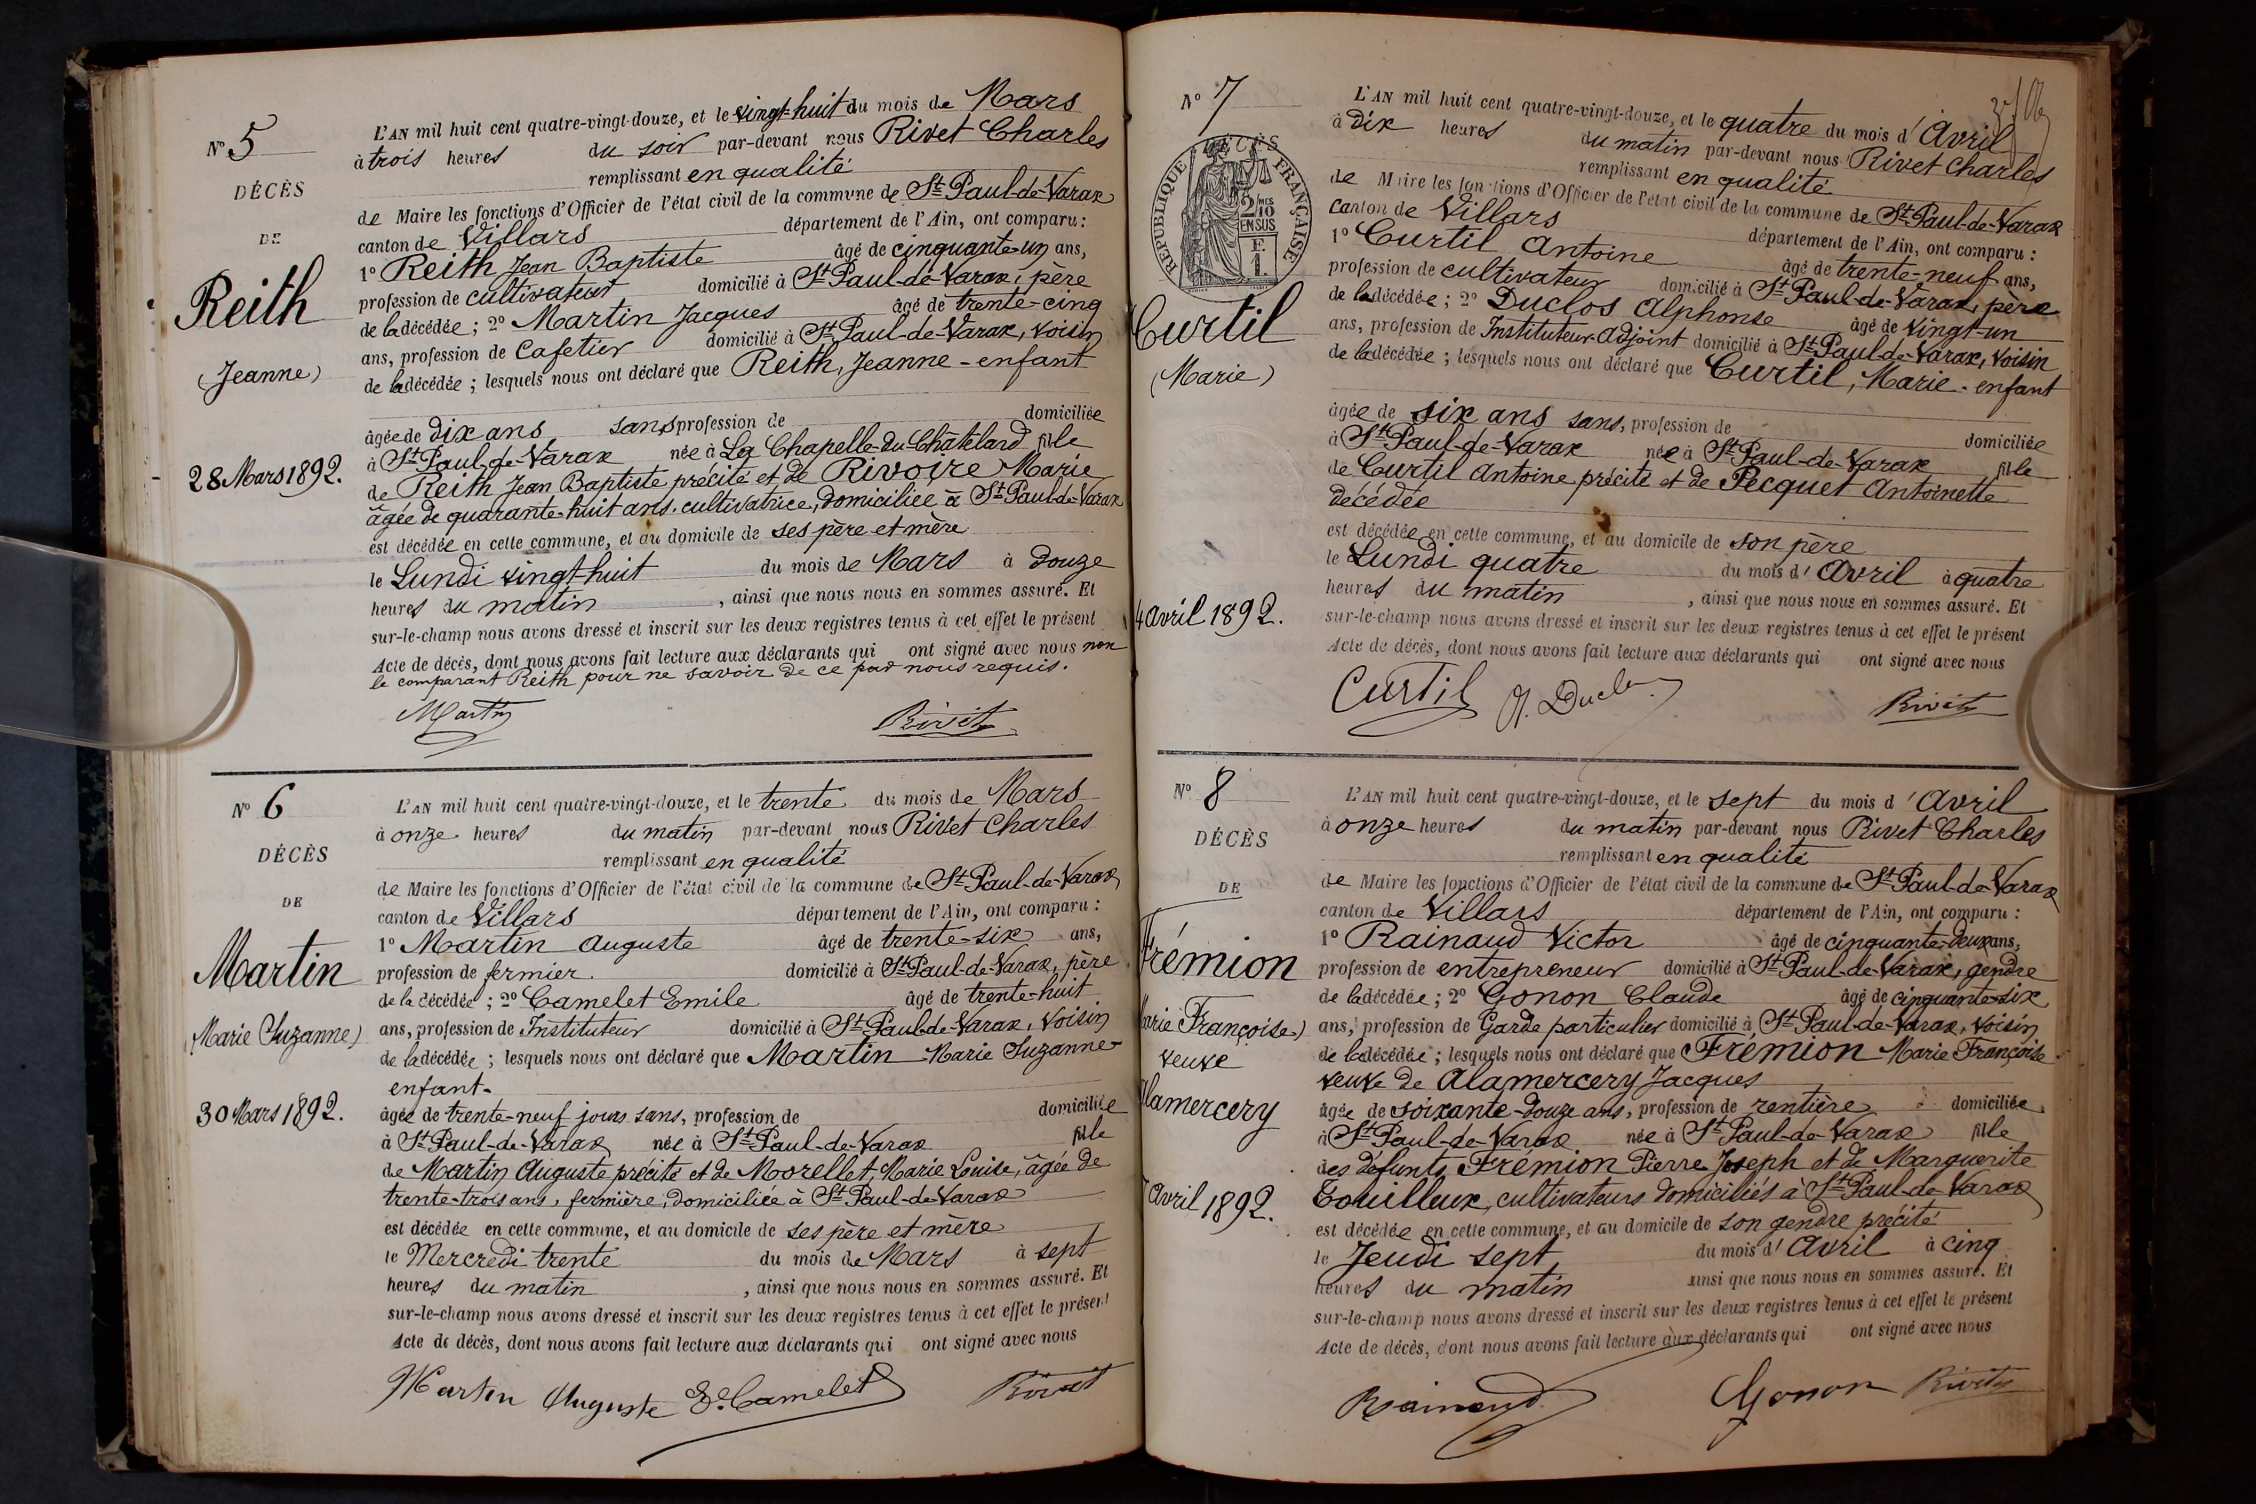 Nº 5
DÉCÈS
DE
Reith
(Jeanne)
28 Mars 1892.
L'AN mil huit cent quatre-vingt-douze, et le vingt-huit du mois de Mars
à trois heures du soir par-devant nous Rivet Charles
remplissant en qualité
de Maire les fonctions d'Officier de l'état civil de la commune de St Paul-de-Varax
canton de Villars département de l'Ain, ont comparu :
1º Reith Jean Baptiste âgé de cinquante-un ans,
profession de cultivateur domicilié à St Paul-de-Varax, père
de la décédée ; 2º Martin Jacques âgé de trente-cinq
ans, profession de Cafetier domicilié à St Paul-de-Varax, voisin
de la décédée ; lesquels nous ont déclaré que Reith, Jeanne - enfant
âgée de dix ans sans profession de domiciliée
à St Paul-de-Varax née à La Chapelle-du-Châtelard fille
de Reith Jean Baptiste précité et de Rivoire Marie
âgée de quarante-huit ans, cultivatrice, domiciliée à St Paul-de-Varax
est décédée en cette commune, et au domicile de ses père et mère
le Lundi vingt-huit du mois de Mars à douze
heures du matin , ainsi que nous nous en sommes assuré. Et
sur-le-champ nous avons dressé et inscrit sur les deux registres tenus à cet effet le présent
Acte de décès, dont nous avons fait lecture aux déclarants qui ont signé avec nous non
le comparant Reith pour ne savoir de ce par nous requis.
Martin Rivet
Nº 6
DÉCÈS
DE
Martin
(Marie Suzanne)
30 Mars 1892.
L'AN mil huit cent quatre-vingt-douze, et le trente du mois de Mars
à onze heures du matin par-devant nous Rivet Charles
remplissant en qualité
de Maire les fonctions d'Officier de l'état civil de la commune de St Paul-de-Varax
canton de Villars département de l'Ain, ont comparu :
1º Martin Auguste âgé de trente-six ans,
profession de fermier. domicilié à St Paul-de-Varax, père
de la décédée ; 2º Camelet Emile âgé de trente-huit
ans, profession de Instituteur domicilié à St Paul-de-Varax, voisin
de la décédée ; lesquels nous ont déclaré que Martin Marie Suzanne
enfant-
âgée de trente-neuf jours sans, profession de domiciliée
à St Paul-de-Varax née à St Paul-de-Varax fille
de Martin Auguste précité et de Moorellet, Marie Louise, âgée de
trente-trois ans, fermière, domiciliée à St Paul-de-Varax
est décédée en cette commune, et au domicile de ses père et mère
le Mercredi trente du mois de Mars à sept
heures du matin , ainsi que nous nous en sommes assuré. Et
sur-le-champ nous avons dressé et inscrit sur les deux registres tenus à cet effet le présent
Acte de décès, dont nous avons fait lecture aux déclarants qui ont signé avec nous
Martin Auguste E. Camelet Rivet
Nº 7
DÉCÈS
RÉPUBLIQUE FRANÇAISE
2 MES
10
EN SUS
F.
1.
Curtil
(Marie)
4 avril 1892.
L'AN mil huit cent quatre-vingt-douze, et le quatre du mois d'Avril
à dix heures du matin par-devant nous Rivet Charles
remplissant en qualité
de Maire les fonctions d'Officier de l'état civil de la commune de St Paul-de-Varax
canton de Villars département de l'Ain, ont comparu :
1º Curtil Antoine âgé de trente-neuf ans,
profession de cultivateur domicilié à St Paul-de-Varax, père
de la décédée ; 2º Duclos Alphonse âgé de vingt-un
ans, profession de Instituteur-Adjoint domicilié à St Paul-de-Varax, voisin
de la décédée ; lesquels nous ont déclaré que Curtil, Marie - enfant
âgée de six ans sans, profession de domiciliée
à St Paul-de-Varax née à St Paul-de-Varax fille
de Curtil Antoine précité et de Pecquet Antoinette
décédée
est décédée en cette commune, et au domicile de son père
le Lundi quatre du mois d'Avril à quatre
heures du matin , ainsi que nous nous en sommes assuré. Et
sur-le-champ nous avons dressé et inscrit sur les deux registres tenus à cet effet le présent
Acte de décès, dont nous avons fait lecture aux déclarants qui ont signé avec nous
Curtil Rivet
Nº 8
DÉCÈS
DE
Frémion
Marie Françoise)
veuve
Alamercery
7 avril 1892.
L'AN mil huit cent quatre-vingt-douze, et le sept du mois d'Avril
à onze heures du matin par-devant nous Rivet Charles
remplissant en qualité
de Maire les fonctions d'Officier de l'état civil de la commune de St Paul-de-Varax
canton de Villars département de l'Ain, ont comparu :
1º Rainaud Victor âgé de cinquante-deux ans,
profession de entrepreneur domicilié à St Paul-de-Varax, gendre
de la décédée ; 2º Gonon Claude âgé de cinquante-six
ans, profession de Garde particulier domicilié à St Paul-de-Varax, voisin
de la décédée ; lesquels nous ont déclaré que Frémion Marie Françoise
veuve de Alamercery Jacques
âgée de soixante-douze ans, profession de rentière domiciliée
à St Paul-de-Varax née à St Paul-de-Varax fille
des défunts Frémion Pierre Joseph et de Marguerite
Touilleux, cultivateurs domiciliés à St Paul-de-Varax
est décédée en cette commune, et au domicile de son gendre précité
le Jeudi sept du mois d'Avril à cinq
heures du matin ainsi que nous nous en sommes assuré. Et
sur-le-champ nous avons dressé et inscrit sur les deux registres tenus à cet effet le présent
Acte de décès, dont nous avons fait lecture aux déclarants qui ont signé avec nous
Rainaud Gonon Rivet